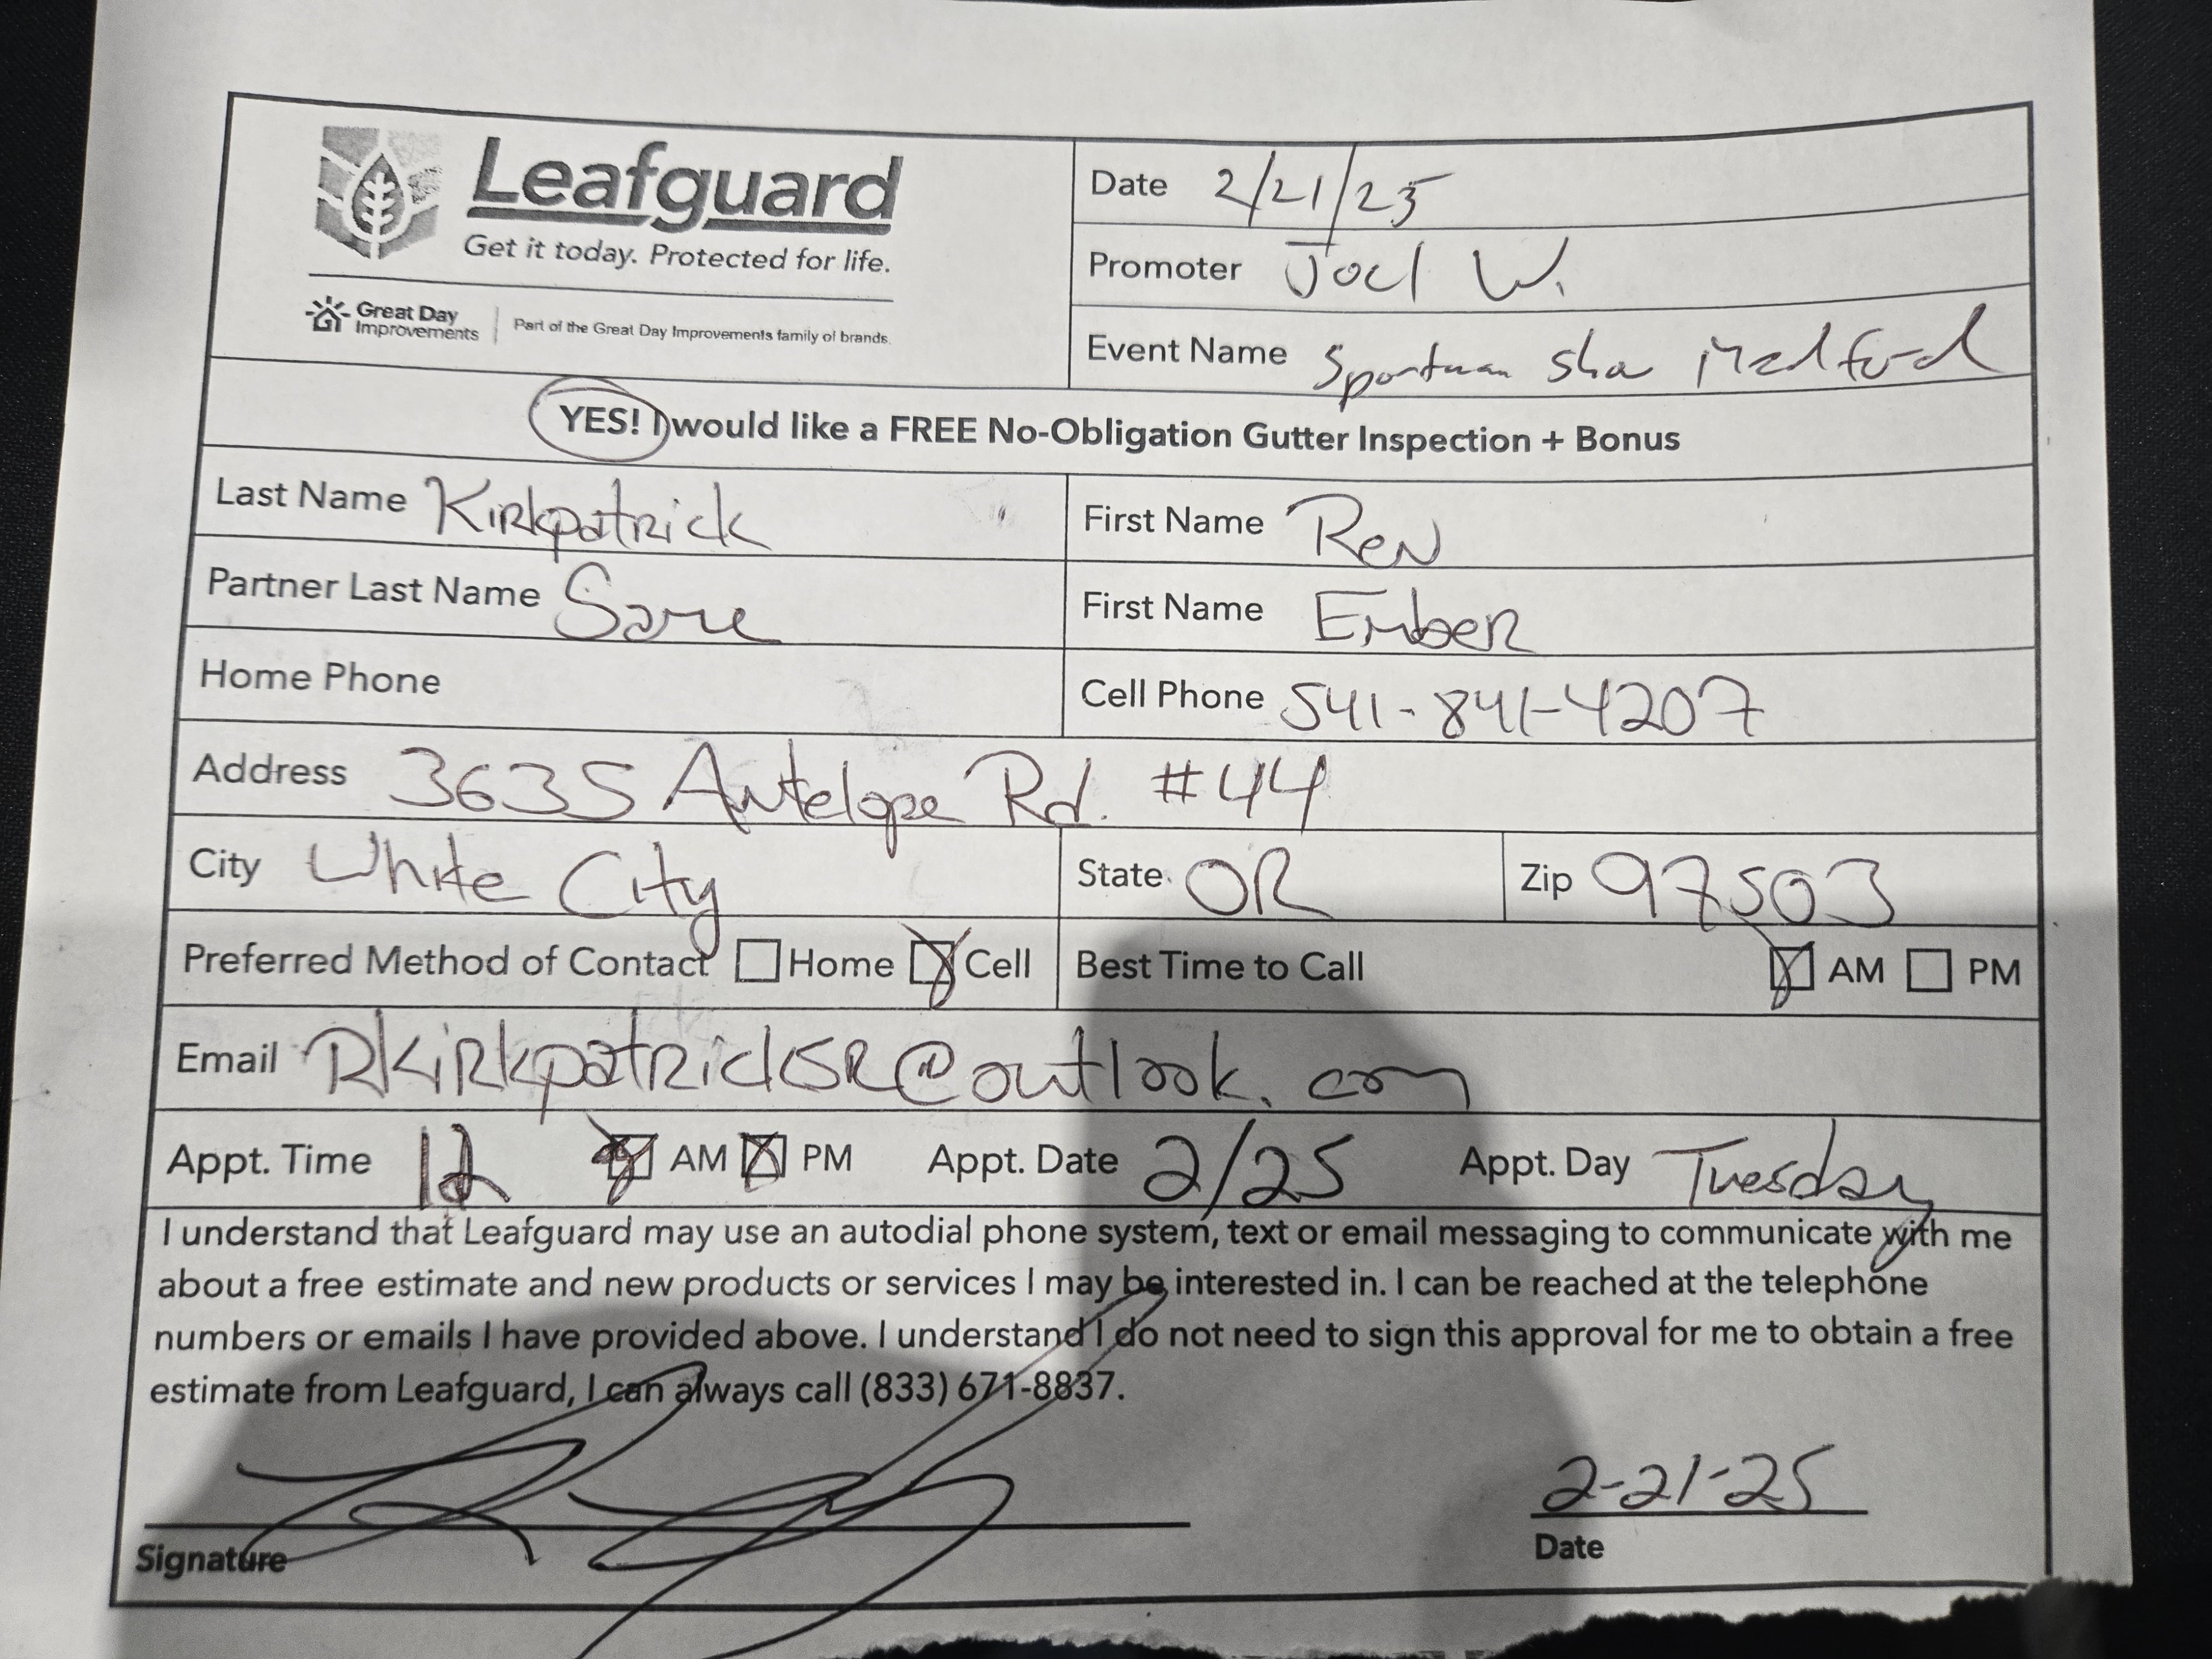 Leafguard
Get it today. Protected for life.
Great Day Improvements | Part of the Great Day Improvements family of brands.
Date 2/21/25
Promoter Joel W.
Event Name Sportman show Medford
YES! I would like a FREE No-Obligation Gutter Inspection + Bonus
Last Name Kirkpatrick First Name Ren
Partner Last Name Same First Name Ember
Home Phone Cell Phone 541-841-4207
Address 3635 Antelope Rd. #44
City White City State OR Zip 97503
Preferred Method of Contact ☐ Home ☒ Cell Best Time to Call ☒ AM ☐ PM
Email RKirkpatricksr@outlook.com
Appt. Time 12 AM ☒ PM Appt. Date 2/25 Appt. Day Tuesday
I understand that Leafguard may use an autodial phone system, text or email messaging to communicate with me
about a free estimate and new products or services I may be interested in. I can be reached at the telephone
numbers or emails I have provided above. I understand I do not need to sign this approval for me to obtain a free
estimate from Leafguard, I can always call (833) 671-8837.
2-21-25
Signature Date